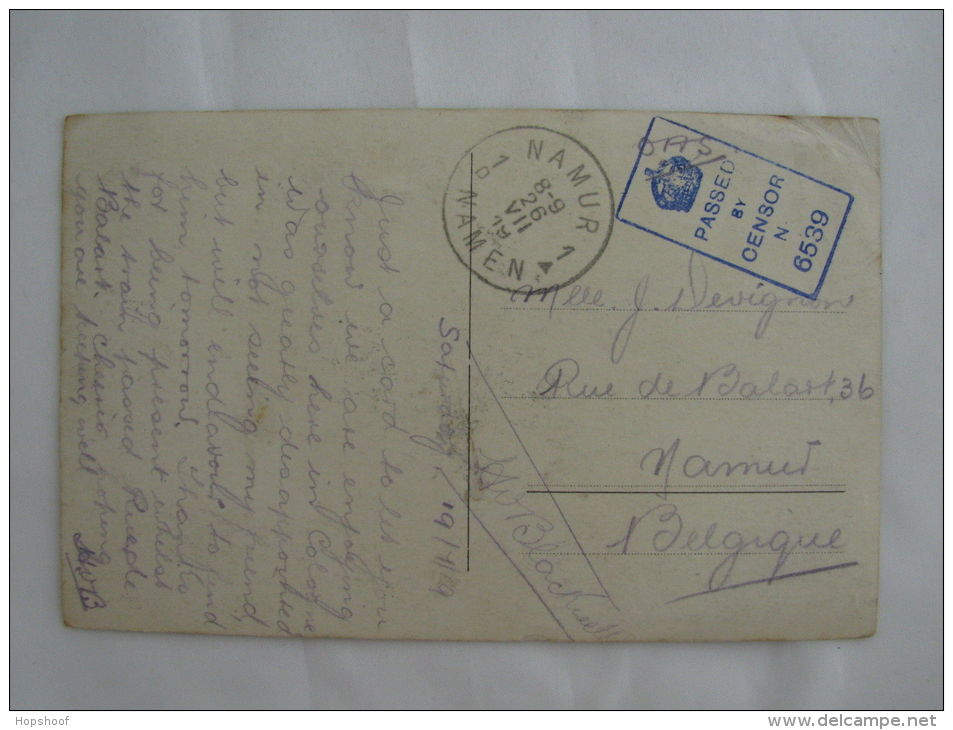 Saturday, 19/7/19
Just a card to let you
know we are enjoying
ourselves here in Cologne
Was greatly disappointed
in not seeing my friend,
but will endeavour to find
him tomorrow. Thanks
for being present whilst
the train passed Rue de
Balart. Cheerio hoping
you are keeping well
HJB
HJ Blackwell
NAMUR 1
8-9
26
VII
19
1B NAMEN
OAS
PASSED
BY
CENSOR
N
6539
Mlle. J. Devignon
Rue de Balart, 36
Namur
Belgique
Hopshoof
delcampe.net